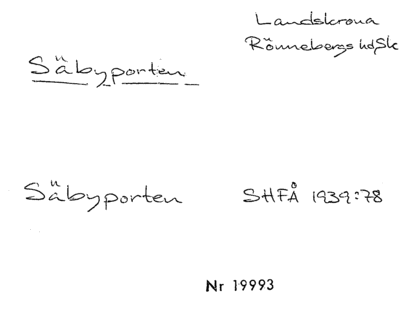 Landskrona
Rönnebergs hd, Sk
Säbyporten
Säbyporten SHFÅ 1939:78
Nr 19993